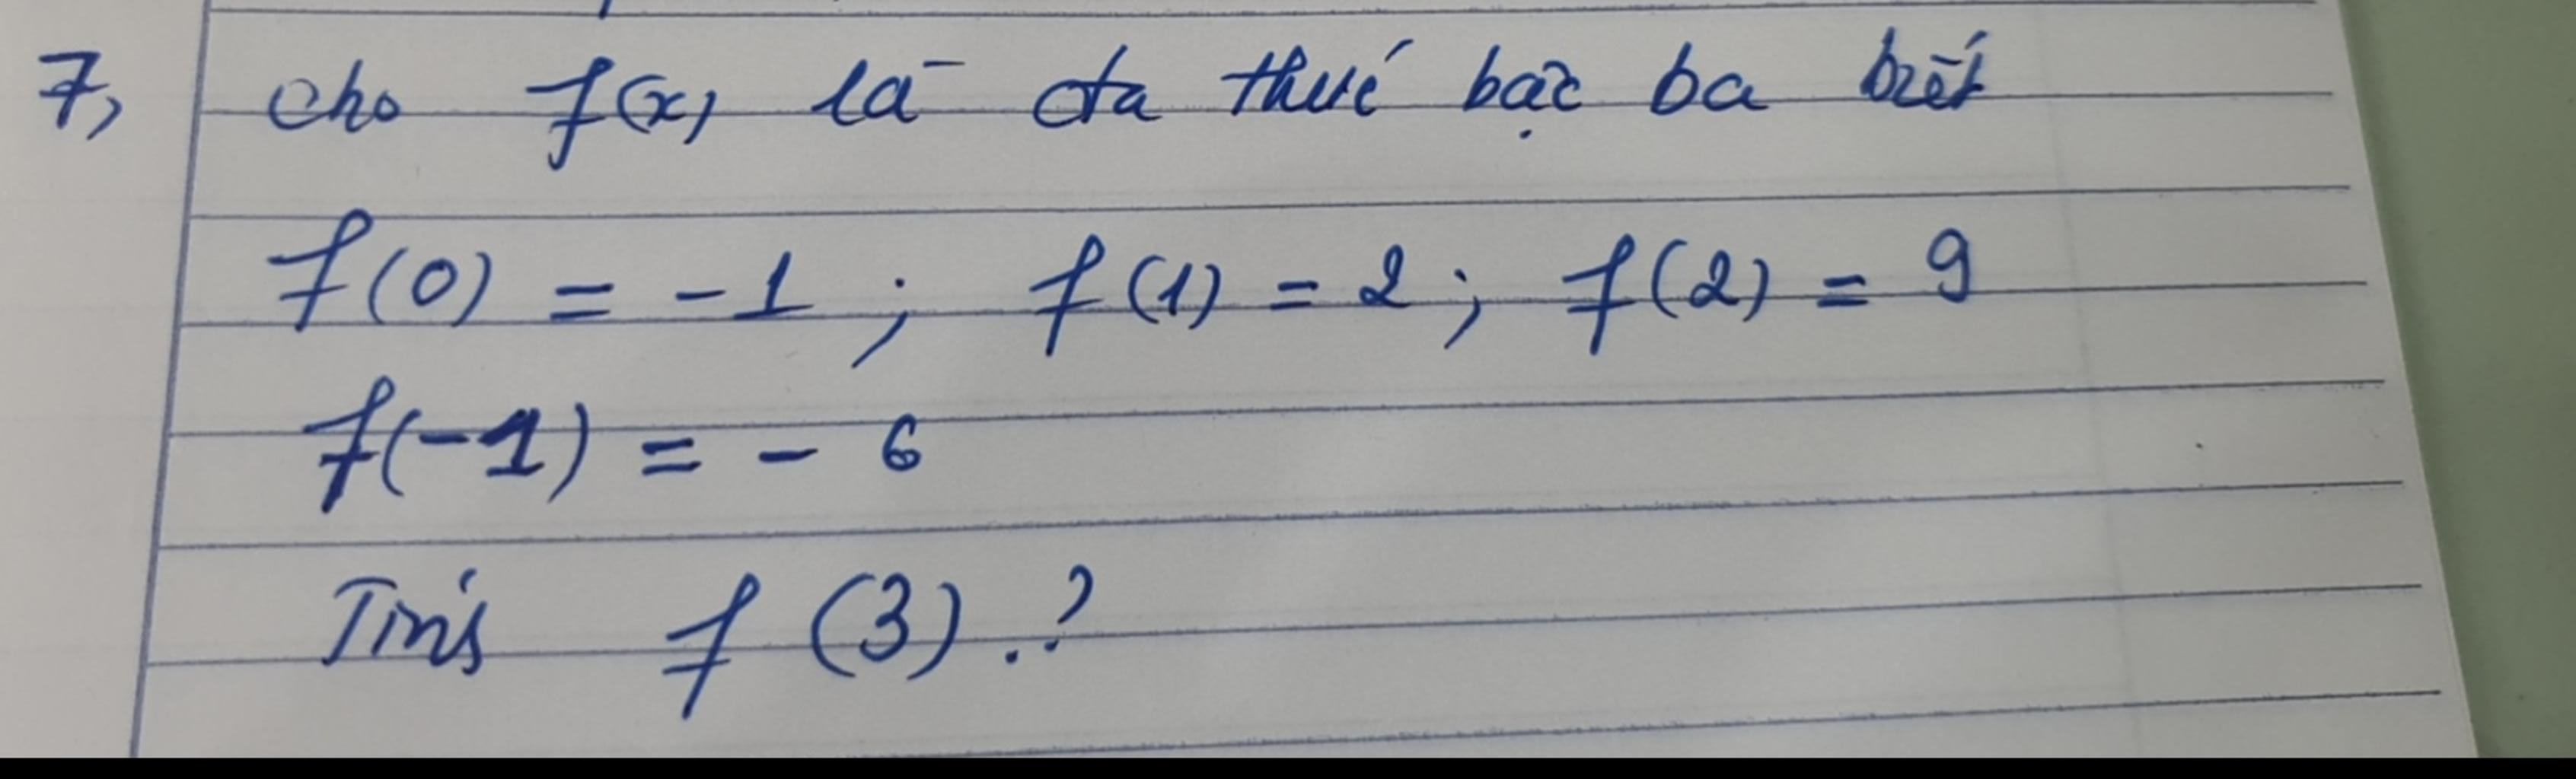 7, Cho f(x) là đa thức bậc ba biết
f(0) = -1 ; f(1) = 2 ; f(2) = 9
f(-1) = - 6
Tính f (3) ?